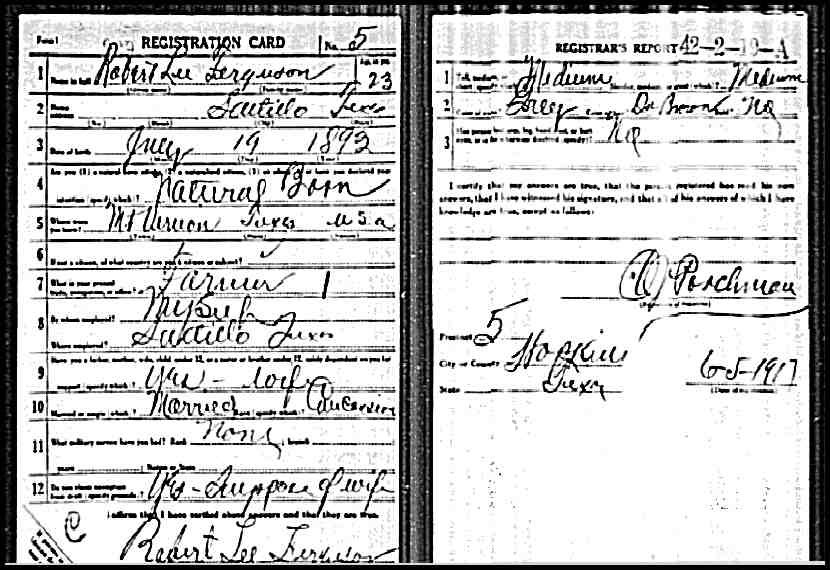 Form 1 REGISTRATION CARD No. 5
1 Name in full Robert Lee Ferguson Age, in yrs. 23
2 Home address Saltillo Texas
3 Date of birth July 19 1893
4 Are you (1) a natural-born citizen, (2) a naturalized citizen, (3) an alien, (4) or have you declared your
intention (specify which)? Natural Born
5 Where were you born? Mt Vernon Texas U S a
6 If not a citizen, of what country are you a citizen or subject?
7 What is your present trade, occupation, or office? Farmer 1
8 By whom employed? Myself
Where employed? Saltillo Texas
9 Have you a father, mother, wife, child under 12, or a sister or brother under 12, solely dependent on you for
support (specify which)? Yes - wife
10 Married or single (which)? Married Race (specify which)? Caucasian
11 What military service have you had? Rank None branch
years Nation or State
12 Do you claim exemption from draft (specify grounds)? Yes - Support of wife
I affirm that I have verified above answers and that they are true.
Robert Lee Ferguson
C
REGISTRAR'S REPORT 42-2-19-A
1 Tall, medium, or short (specify which)? Medium Slender, medium, or stout (which)? Medium
2 Grey Dr Brown No
3 Has person lost arm, leg, hand, foot, or both eyes, or is he otherwise disabled (specify)? No
I certify that my answers are true, that the person registered has read his own
answers, that I have witnessed his signature, and that all of his answers of which I have
knowledge are true, except as follows:
(Signature of registrar)
Precinct 5
City or County Hopkins
State Texas
6-5-1917
(Date of registration)